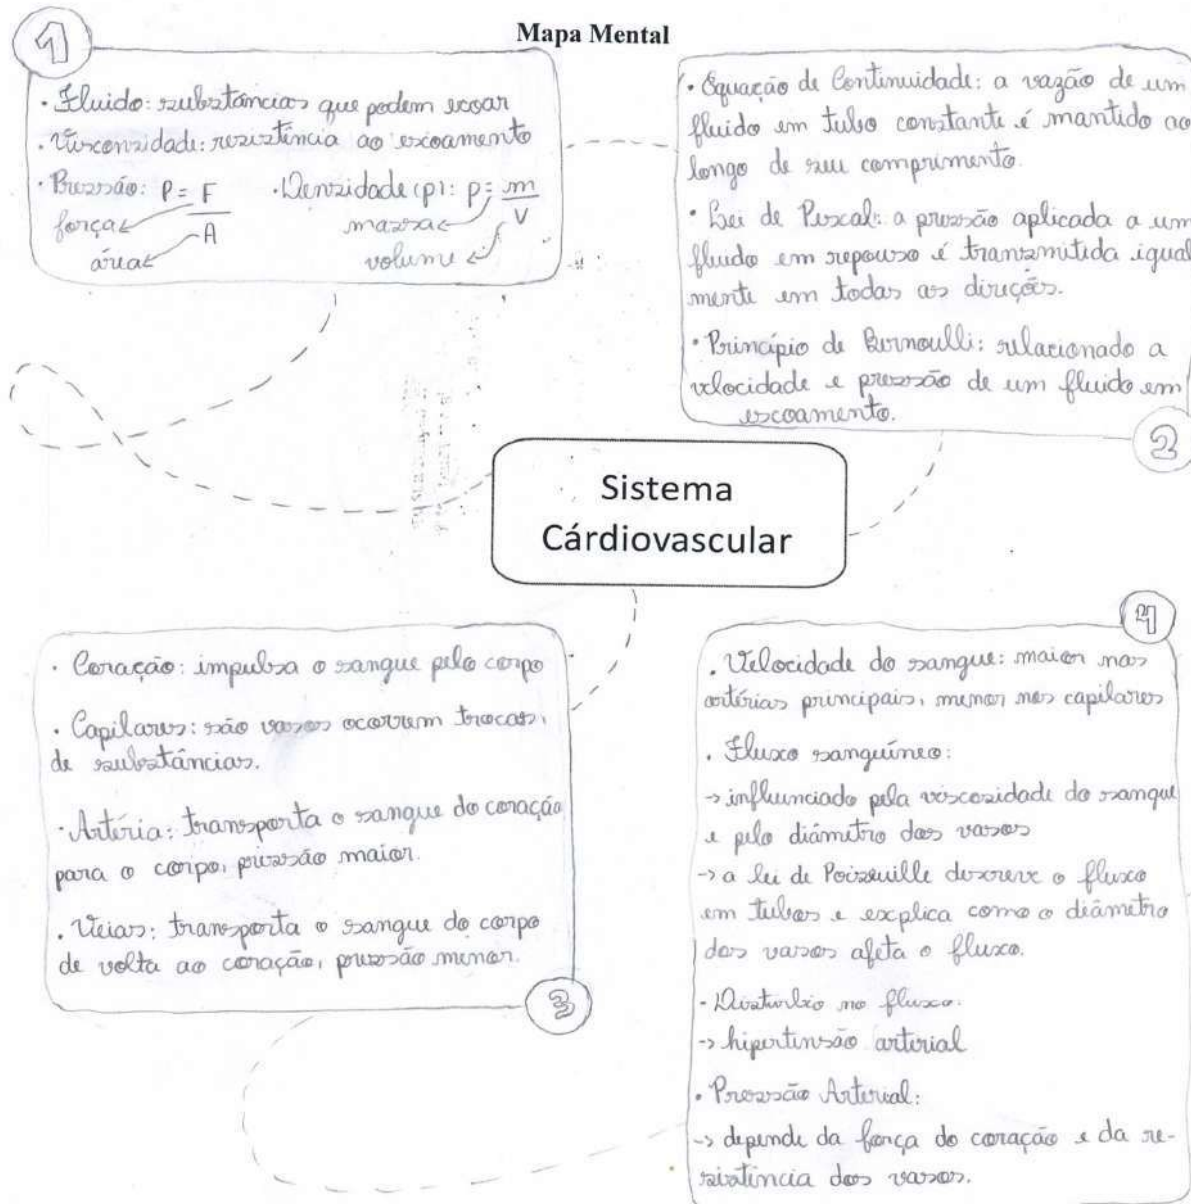 Mapa Mental
1
• Fluido: substâncias que podem escoar
• Visconsidade: resistência ao escoamento
• Pressão: P = F/A
• Densidade (p): p = m/V
força
área
massa
volume
• Equação de Continuidade: a vazão de um
fluido em tubo constante é mantido ao
longo de seu comprimento.
• Lei de Pascal: a pressão aplicada a um
fluido em repouso é transmitida igual
mente em todas as direções.
• Princípio de Bernoulli: relacionado a
velocidade e pressão de um fluido em
escoamento.
2
Sistema
Cárdiovascular
• Coração: impulsa o sangue pelo corpo
• Capilares: são vasos ocorrem trocas,
de substâncias.
• Artéria: transporta o sangue do coração
para o corpo, pressão maior.
• Veias: transporta o sangue do corpo
de volta ao coração, pressão menor.
3
4
• Velocidade do sangue: maior nas
artérias principais, menor nos capilares
• Fluxo sanguíneo:
-> influenciado pela viscosidade do sangue
e pelo diâmetro dos vasos
-> a lei de Poiseuille descreve o fluxo
em tubos e explica como o diâmetro
dos vasos afeta o fluxo.
- Disturbio no fluxo:
-> hipertensão arterial
• Pressão Arterial:
-> depende da força do coração e da re-
sistência dos vasos.